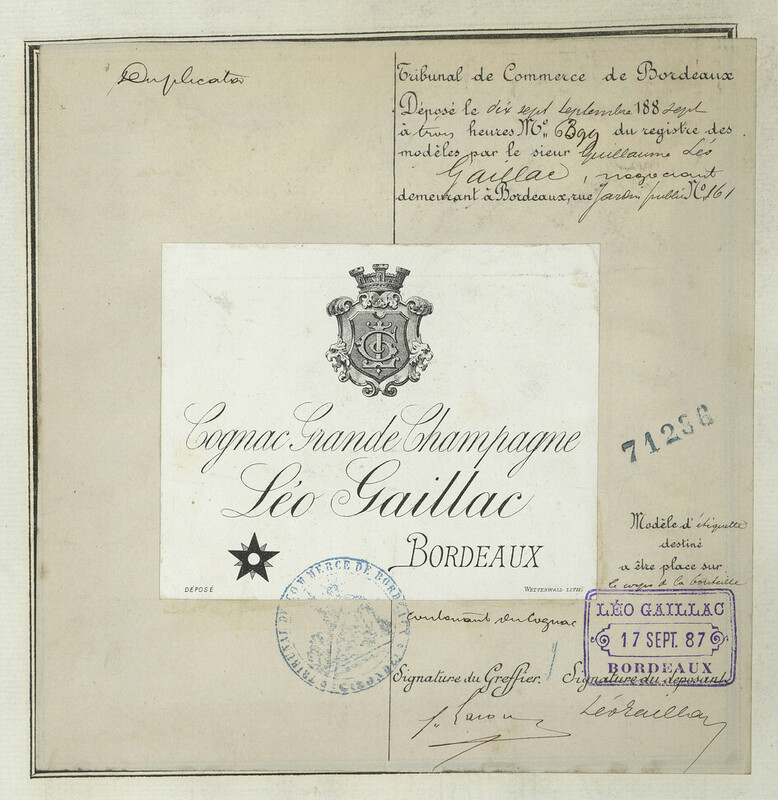 Duplicata
Tribunal de Commerce de Bordeaux
Déposé le dix sept septembre 188 sept
à trois heures No. 6399 du registre des
modèles par le sieur Guillaume Léo
Gaillac, négociant
demeurant à Bordeaux, rue Jardin public No. 161
Cognac Grande Champagne
Léo Gaillac
BORDEAUX
DÉPOSÉ
WETTERWALD LITH.
71236
Modèle d'étiquette
destiné
a être place sur
le corps de la bouteille
contenant du Cognac
TRIBUNAL DE COMMERCE DE BORDEAUX
LÉO GAILLAC
17 SEPT. 87
BORDEAUX
Signature du Greffier.
Signature du deposant
Léo Gaillac